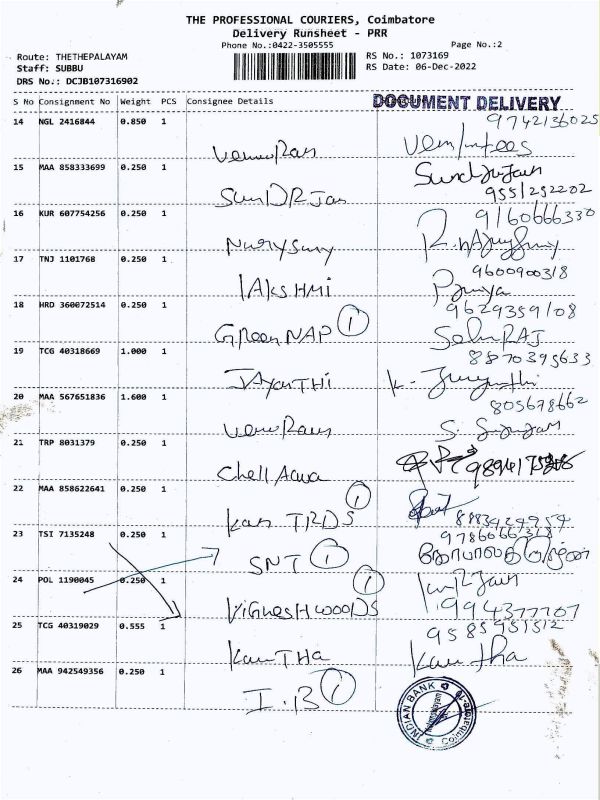 THE PROFESSIONAL COURIERS, Coimbatore
Delivery Runsheet - PRR
Phone No.:0422-3505555
Page No.:2
Route: THETHEPALAYAM
Staff: SUBBU
DRS No.: DCJB107316902
RS No.: 1073169
RS Date: 06-Dec-2022
S No Consignment No Weight PCS Consignee Details
DOCUMENT DELIVERY
14 NGL 2416844 0.850 1
9742136025
15 MAA 858333699 0.250 1
SunDRJan
9551252202
16 KUR 607754256 0.250 1
9160666330
17 TNJ 1101768 0.250 1
LAKSHMI
9600900318
Priya
18 HRD 360072514 0.250 1
GReen NAP 1
9629359108
SelvRAJ
19 TCG 40318669 1.000 1
JAyanTHi
8870395633
20 MAA 567651836 1.600 1
805678662
21 TRP 8031379 0.250 1
22 MAA 858622641 0.250 1
Kan TRDS 1
23 TSI 7135248 0.250 1
SNT 1
24 POL 1190045 0.250 1
VigNesH WOODS 1
1994377707
25 TCG 40319029 0.555 1
KanTHa
9585951512
Kantha
26 MAA 942549356 0.250 1
I.B 1
INDIAN BANK